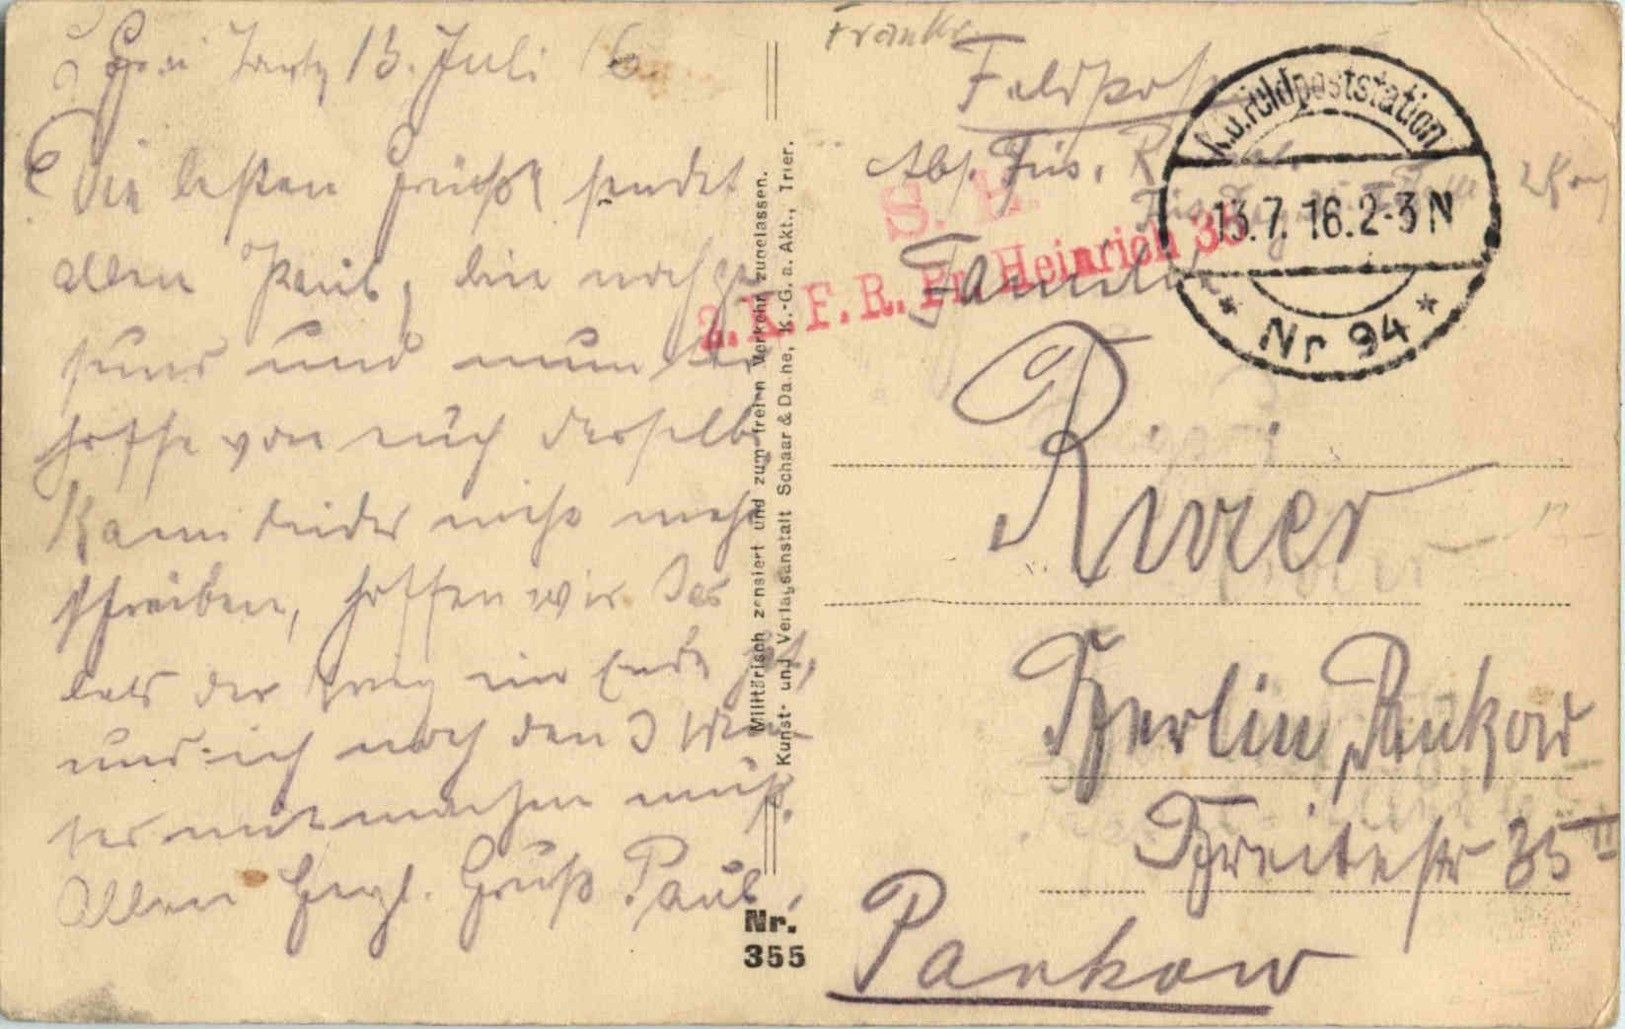 13. Juli 16
Die besten Grüße sendet
allen Paul, bin noch ge-
sund und munter
hoffe von euch dasselbe,
Kann leider nicht mehr
schreiben, hoffen wir das
bald der Krieg ein Ende hat,
und ich noch den 3 Win-
ter mitmachen muß.
Allen Herzl. Gruß Paul.
Militärisch zensiert und zum freien Verkehr zugelassen.
Kunst- und Verlagsanstalt Schaar & Dathe, K.-G. a. Akt., Trier.
Nr.
355
Frankr.
Feldpost
Abs. Füs.
S. B.
2. K. F. R. Pr. Heinrich 35
K.D. Feldpoststation
13.7.16.2-3N
* Nr 94 *
Familie
Rivier
Berlin Pankow
Breitestr 35 II
Pankow